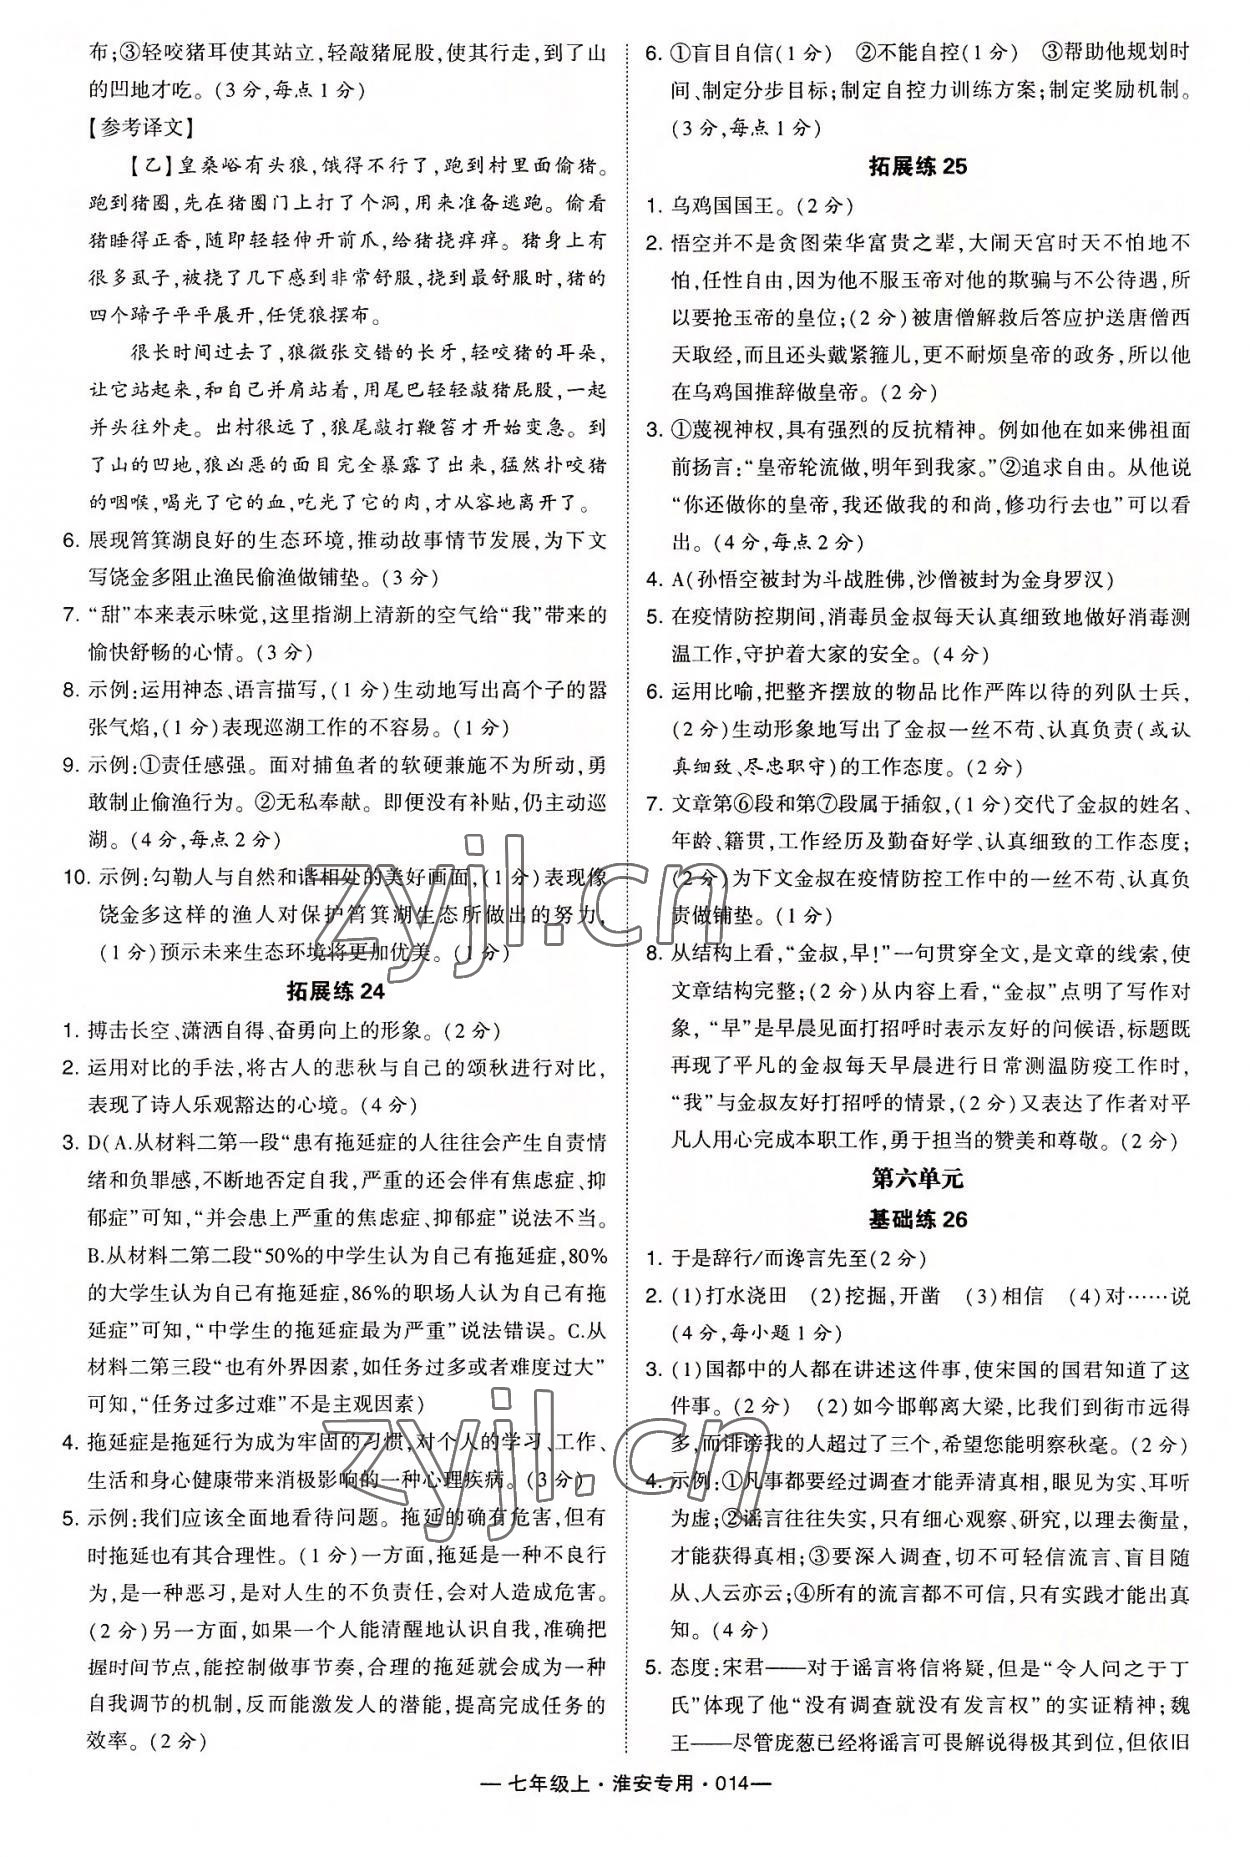 布;③轻咬猪耳使其站立,轻敲猪屁股,使其行走,到了山
的凹地才吃。(3分,每点1分)
【参考译文】
【乙】皇桑峪有头狼,饿得不行了,跑到村里面偷猪。
跑到猪圈,先在猪圈门上打了个洞,用来准备逃跑。偷看
猪睡得正香,随即轻轻伸开前爪,给猪挠痒痒。猪身上有
很多虱子,被挠了几下感到非常舒服,挠到最舒服时,猪的
四个蹄子平平展开,任凭狼摆布。
很长时间过去了,狼微张交错的长牙,轻咬猪的耳朵,
让它站起来,和自己并肩站着,用尾巴轻轻敲猪屁股,一起
并头往外走。出村很远了,狼尾敲打鞭笞才开始变急。到
了山的凹地,狼凶恶的面目完全暴露了出来,猛然扑咬猪
的咽喉,喝光了它的血,吃光了它的肉,才从容地离开了。
6. 展现筲箕湖良好的生态环境,推动故事情节发展,为下文
写饶金多阻止渔民偷渔做铺垫。(3分)
7. “甜”本来表示味觉,这里指湖上清新的空气给“我”带来的
愉快舒畅的心情。(3分)
8. 示例:运用神态、语言描写,(1分)生动地写出高个子的嚣
张气焰,(1分)表现巡湖工作的不容易。(1分)
9. 示例:①责任感强。面对捕鱼者的软硬兼施不为所动,勇
敢制止偷渔行为。②无私奉献。即便没有补贴,仍主动巡
湖。(4分,每点2分)
10. 示例:勾勒人与自然和谐相处的美好画面,(1分)表现像
饶金多这样的渔人对保护筲箕湖生态所做出的努力,
(1分)预示未来生态环境将更加优美。(1分)
拓展练24
1. 搏击长空、潇洒自得、奋勇向上的形象。(2分)
2. 运用对比的手法,将古人的悲秋与自己的颂秋进行对比,
表现了诗人乐观豁达的心境。(4分)
3. D(A.从材料二第一段“患有拖延症的人往往会产生自责情
绪和负罪感,不断地否定自我,严重的还会伴有焦虑症、抑
郁症”可知,“并会患上严重的焦虑症、抑郁症”说法不当。
B.从材料二第二段“50%的中学生认为自己有拖延症,80%
的大学生认为自己有拖延症,86%的职场人认为自己有拖
延症”可知,“中学生的拖延症最为严重”说法错误。C.从
材料二第三段“也有外界因素,如任务过多或者难度过大”
可知,“任务过多过难”不是主观因素)
4. 拖延症是拖延行为成为牢固的习惯,对个人的学习、工作、
生活和身心健康带来消极影响的一种心理疾病。(3分)
5. 示例:我们应该全面地看待问题。拖延的确有危害,但有
时拖延也有其合理性。(1分)一方面,拖延是一种不良行
为,是一种恶习,是对人生的不负责任,会对人造成危害。
(2分)另一方面,如果一个人能清醒地认识自我,准确把
握时间节点,能控制做事节奏,合理的拖延就会成为一种
自我调节的机制,反而能激发人的潜能,提高完成任务的
效率。(2分)
6. ①盲目自信(1分) ②不能自控(1分) ③帮助他规划时
间、制定分步目标;制定自控力训练方案;制定奖励机制。
(3分,每点1分)
拓展练25
1. 乌鸡国国王。(2分)
2. 悟空并不是贪图荣华富贵之辈,大闹天宫时天不怕地不
怕,任性自由,因为他不服玉帝对他的欺骗与不公待遇,所
以要抢玉帝的皇位;(2分)被唐僧解救后答应护送唐僧西
天取经,而且还头戴紧箍儿,更不耐烦皇帝的政务,所以他
在乌鸡国推辞做皇帝。(2分)
3. ①蔑视神权,具有强烈的反抗精神。例如他在如来佛祖面
前扬言:“皇帝轮流做,明年到我家。”②追求自由。从他说
“你还做你的皇帝,我还做我的和尚,修功行去也”可以看
出。(4分,每点2分)
4. A(孙悟空被封为斗战胜佛,沙僧被封为金身罗汉)
5. 在疫情防控期间,消毒员金叔每天认真细致地做好消毒测
温工作,守护着大家的安全。(4分)
6. 运用比喻,把整齐摆放的物品比作严阵以待的列队士兵,
(2分)生动形象地写出了金叔一丝不苟、认真负责(或认
真细致、尽忠职守)的工作态度。(2分)
7. 文章第⑥段和第⑦段属于插叙,(1分)交代了金叔的姓名、
年龄、籍贯,工作经历及勤奋好学、认真细致的工作态度;
(2分)为下文金叔在疫情防控工作中的一丝不苟、认真负
责做铺垫。(1分)
8. 从结构上看,“金叔,早!”一句贯穿全文,是文章的线索,使
文章结构完整;(2分)从内容上看,“金叔”点明了写作对
象,“早”是早晨见面打招呼时表示友好的问候语,标题既
再现了平凡的金叔每天早晨进行日常测温防疫工作时,
“我”与金叔友好打招呼的情景,(2分)又表达了作者对平
凡人用心完成本职工作,勇于担当的赞美和尊敬。(2分)
第六单元
基础练26
1. 于是辞行/而谗言先至(2分)
2. (1)打水浇田 (2)挖掘,开凿 (3)相信 (4)对……说
(4分,每小题1分)
3. (1)国都中的人都在讲述这件事,使宋国的国君知道了这
件事。(2分) (2)如今邯郸离大梁,比我们到街市远得
多,而诽谤我的人超过了三个,希望您能明察秋毫。(2分)
4. 示例:①凡事都要经过调查才能弄清真相,眼见为实、耳听
为虚;②谣言往往失实,只有细心观察、研究,以理去衡量,
才能获得真相;③要深入调查,切不可轻信流言、盲目随
从、人云亦云;④所有的流言都不可信,只有实践才能出真
知。(4分)
5. 态度:宋君——对于谣言将信将疑,但是“令人问之于丁
氏”体现了他“没有调查就没有发言权”的实证精神;魏
王——尽管庞葱已经将谣言可畏解说得极其到位,但依旧
zyjl.cn
zyjl.cn
— 七年级上·淮安专用·014 —